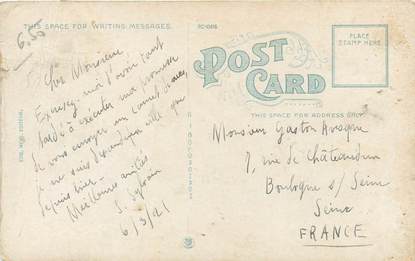 THIS SPACE FOR WRITING MESSAGES.
POST CARD
PLACE
STAMP HERE
THIS SPACE FOR ADDRESS ONLY.
6.50
Cher Monsieur
Excusez-moi d'avoir tant
tardé à exécuter ma promesse
de vous envoyer un
je ne suis ville que
depuis hier.
Meilleures amitiés
S. Sylvain
6/3/21
Monsieur Gaston
7, rue de Châteaudun
Boulogne s/ Seine
Seine
FRANCE